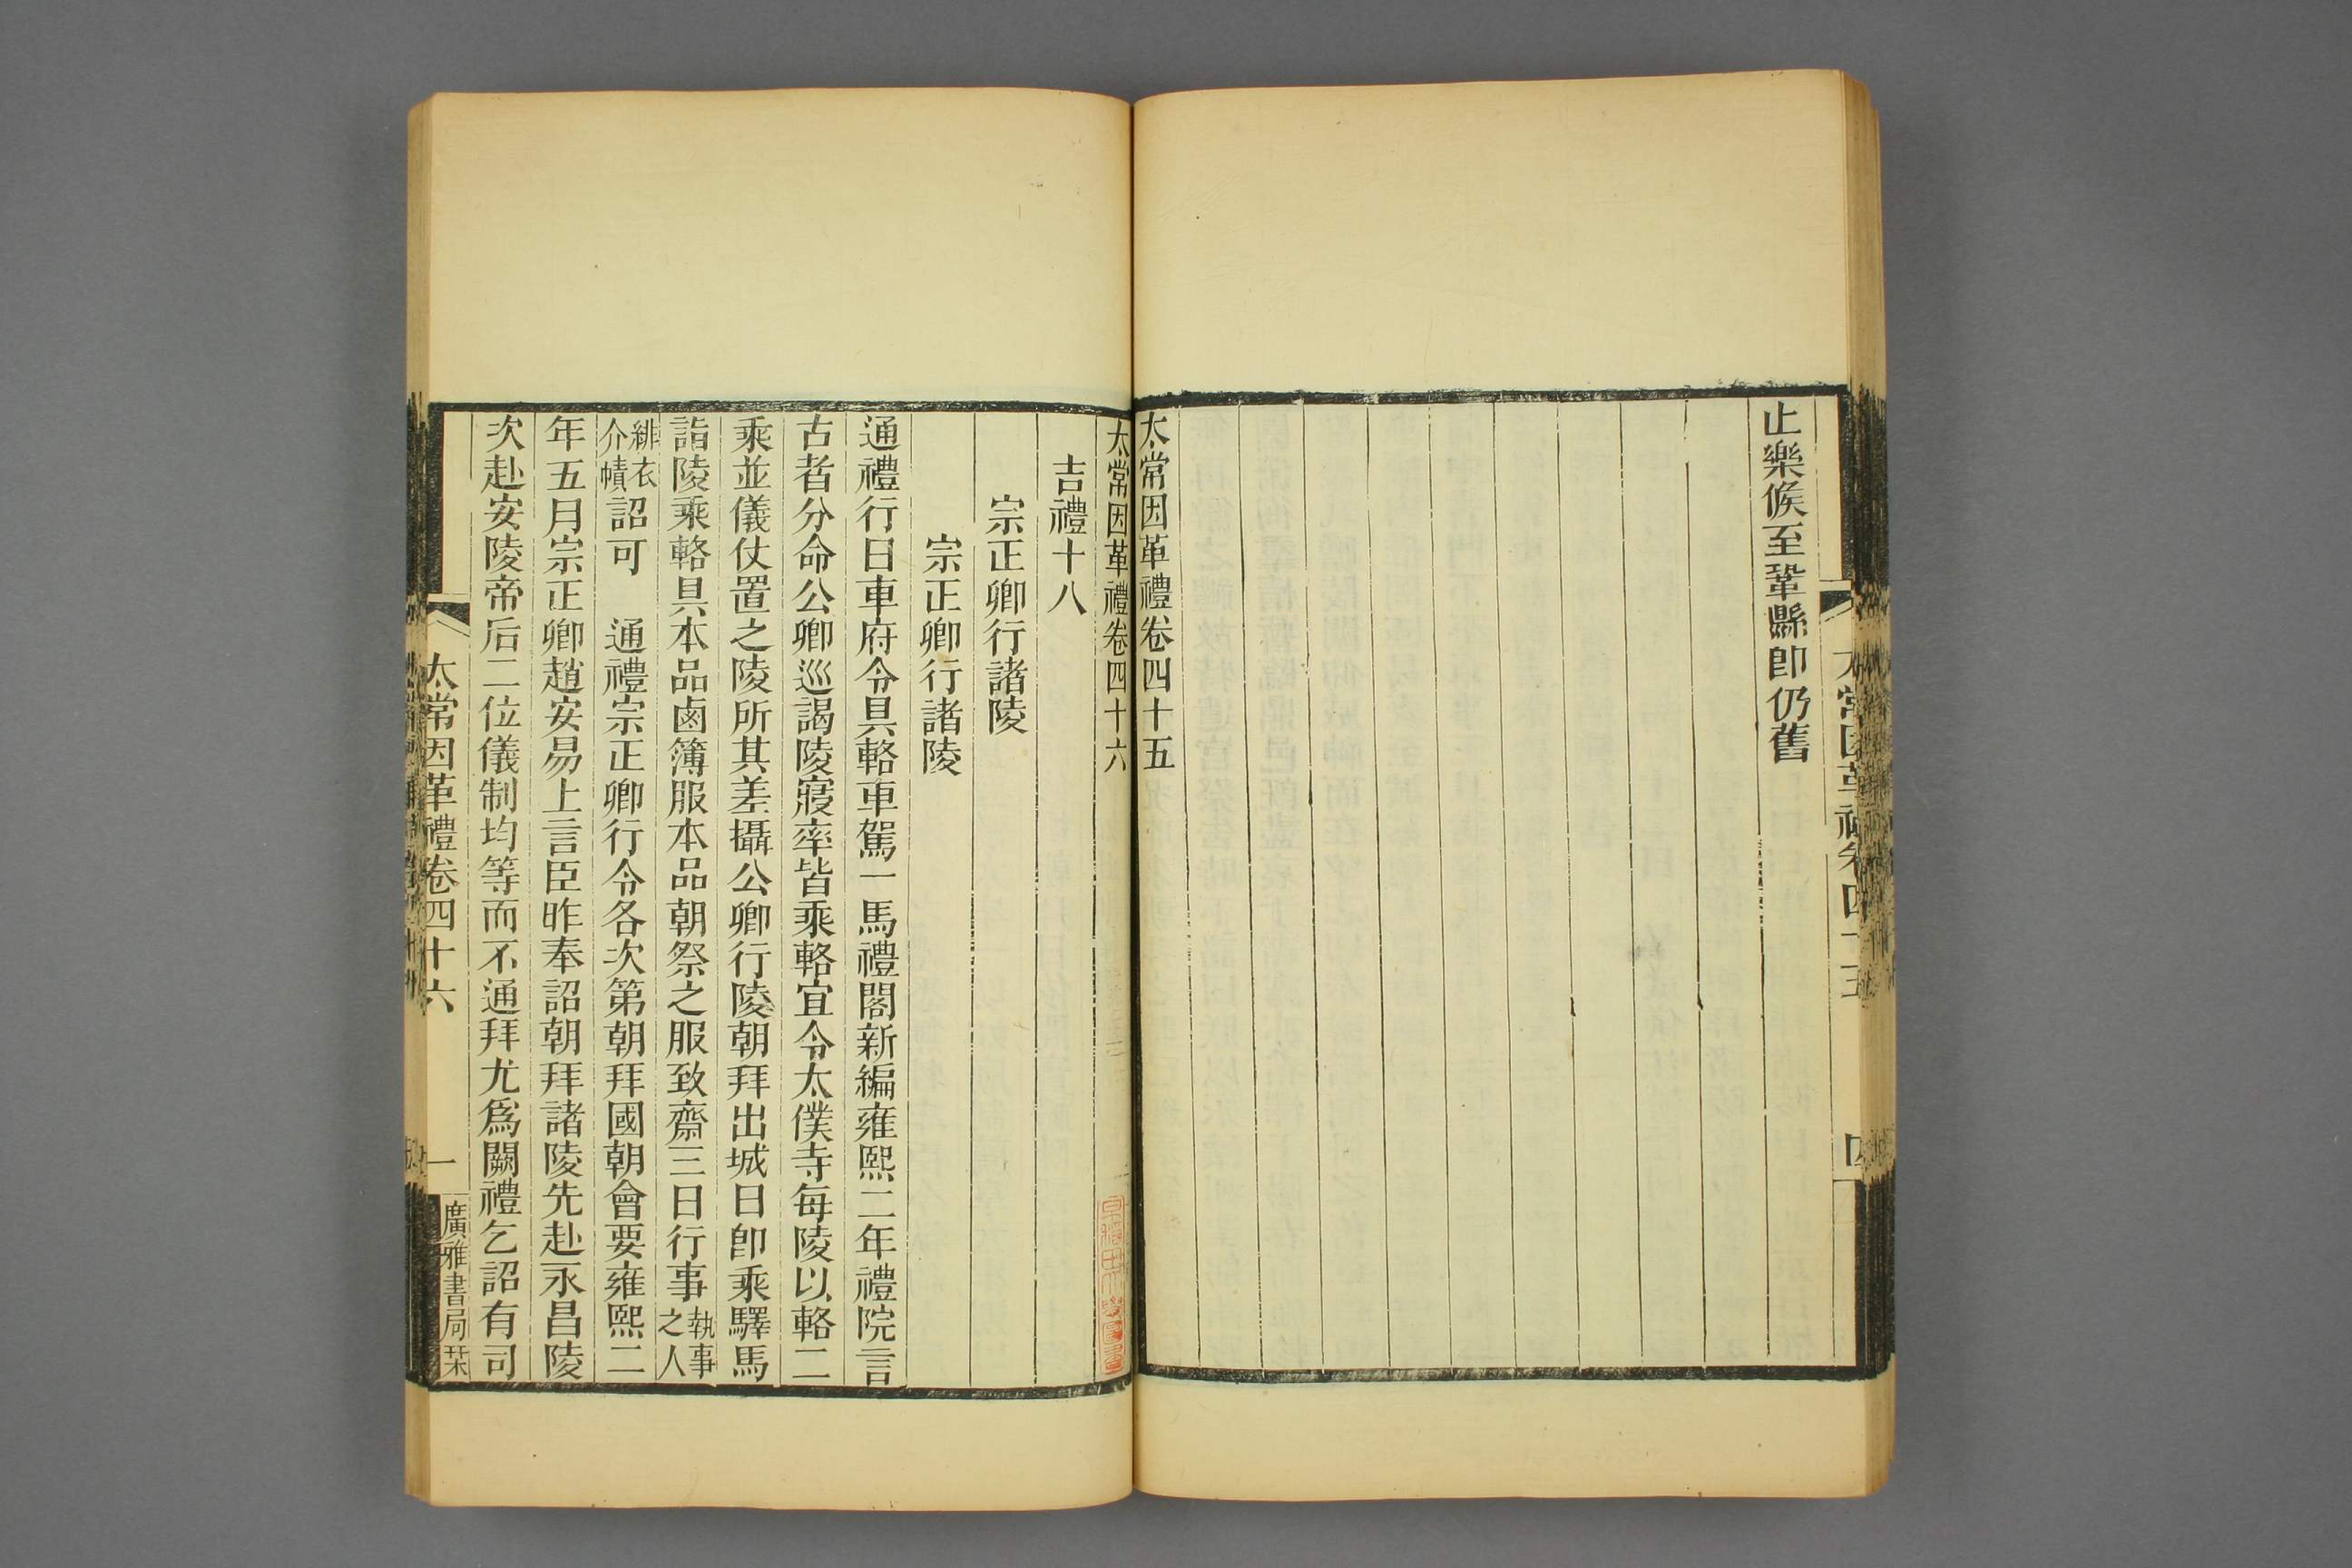 止樂候至鞏縣卽仍舊
太常因革禮卷四十五
太常因革禮卷四十六
吉禮十八
宗正卿行諸陵
宗正卿行諸陵
通禮行日車府令具輅車駕一馬禮閣新編雍熙二年禮院言
古者分命公卿巡謁陵寢率皆乘輅宜令太僕寺每陵以輅二
乘並儀仗置之陵所其差攝公卿行陵朝拜出城日卽乘驛馬
詣陵乘輅具本品鹵簿服本品朝祭之服致齋三日行事執事之人
緋衣介幘詔可　通禮宗正卿行令各次第朝拜國朝會要雍熙二
年五月宗正卿趙安易上言臣昨奉詔朝拜諸陵先赴永昌陵
次赴安陵帝后二位儀制均等而不通拜尤爲闕禮乞詔有司
太常因革禮卷四十六
一
廣雅書局栞